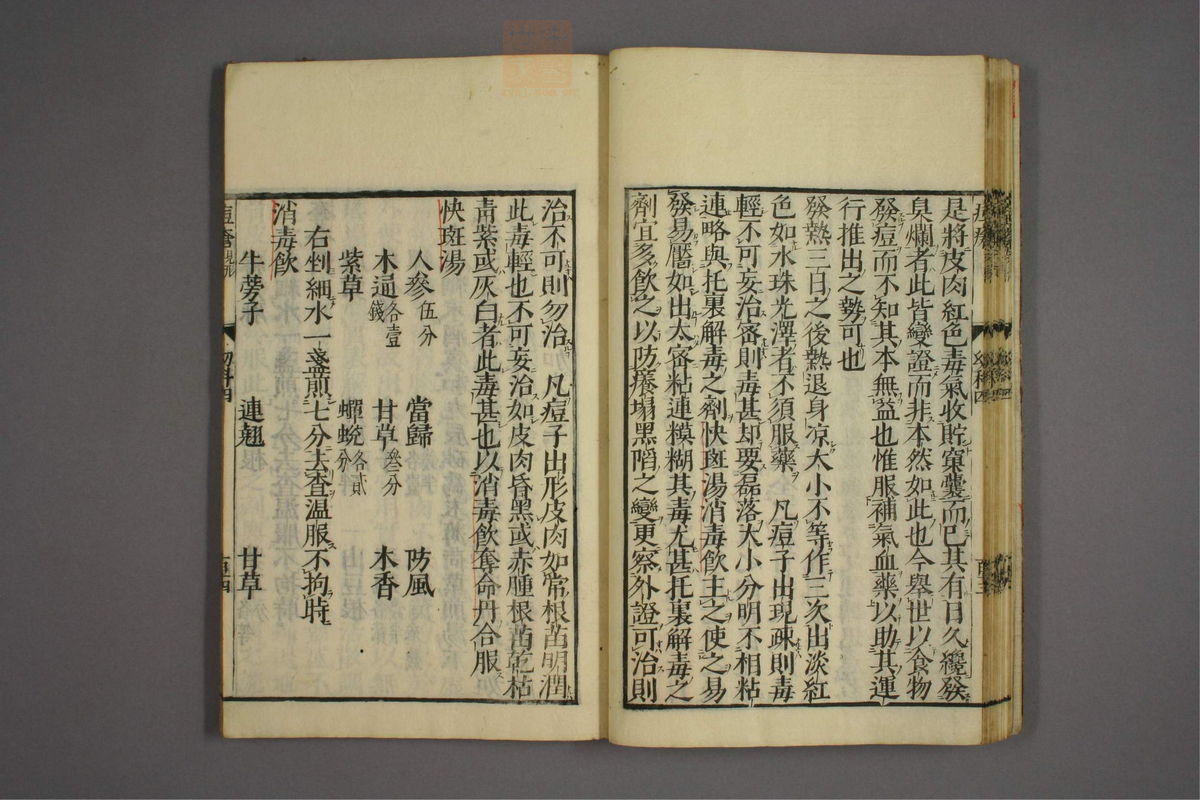 是將皮肉紅色毒氣收貯窠囊而已其有日久纔發
臭爛者此皆變證而非本然如此也今舉世以食物
發痘而不知其本無益也惟服補氣血藥以助其運
行推出之勢可也
發熱三日之後熱退身凉大小不等作三次出淡紅
色如水珠光澤者不須服藥　凡痘子出現疎則毒
輕不可妄治密則毒甚却要磊落大小分明不相粘
連略與托裏解毒之劑快斑湯消毒飲主之使之易
發易靨如出太密粘連模糊其毒尤甚托裏解毒之
劑宜多飲之以防癢塌黑陷之變更察外證可治則
治不可則勿治　凡痘子出形皮肉如常根窠明潤
此毒輕也不可妄治如皮肉昏黑或赤腫根窠乾枯
青紫或灰白者此毒甚也以消毒飲奪命丹合服
快斑湯
人參伍分　當歸　防風
木通各壹錢　甘草叁分　木香
紫草　蟬蛻各貳分
右剉細水一盞煎七分去查温服不拘時
消毒飲
牛蒡子　連翹　甘草
痘瘡 幼科四